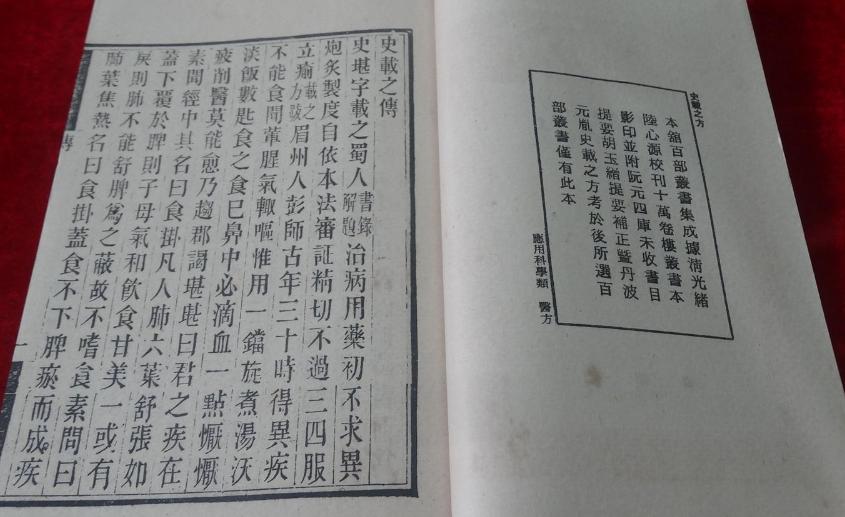 史載之方
本館百部叢書集成據清光緒
陸心源校刊十萬卷樓叢書本
影印並附阮元四庫未收書目
提要胡玉縉提要補正暨丹波
元胤史載之方考於後所選百
部叢書僅有此本
應用科學類 醫方
史載之傳
史堪字載之蜀人書錄解題治病用藥初不求異
炮炙製度自依本法審証精切不過三四服
立瘉載之方跋眉州人彭師古年三十時得異疾
不能食聞葷腥氣輒嘔惟用一鐺旋煮湯沃
淡飯數匙食之食巳鼻中必滴血一點懨懨
疲削醫莫能愈乃趨郡謁堪堪曰君之疾在
素問經中其名曰食掛凡人肺六葉舒張如
蓋下覆於脾則子母氣和飲食甘美一或有
戾則肺不能舒脾爲之蔽故不嗜食素問曰
肺葉焦熱名曰食掛蓋食不下脾瘀而成疾
傳
一